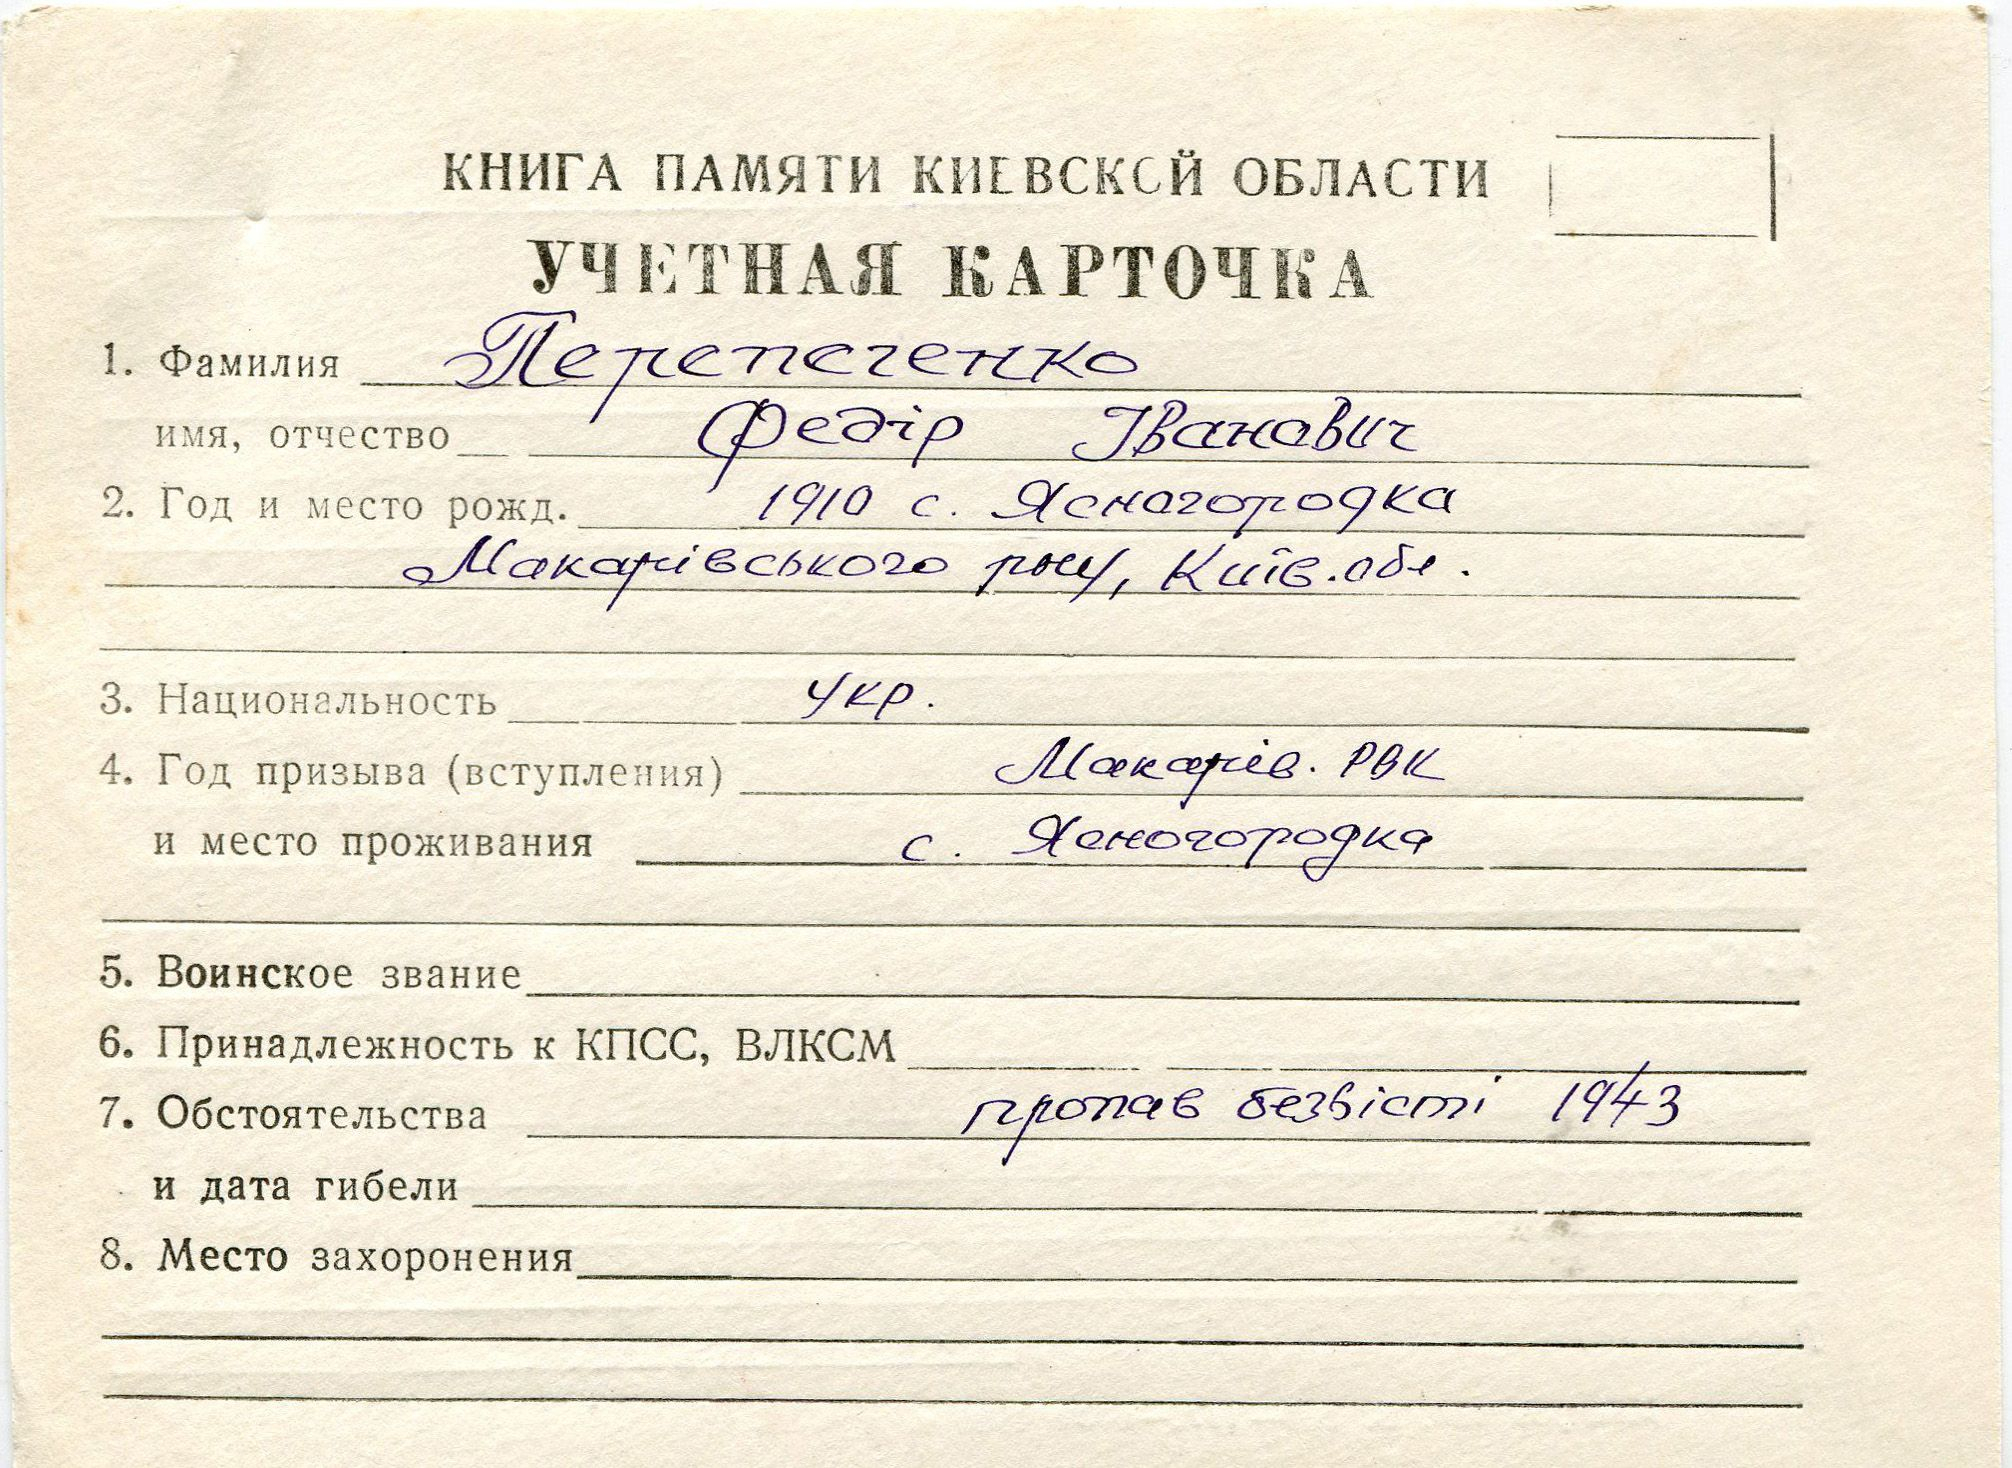 КНИГА ПАМЯТИ КИЕВСКОЙ ОБЛАСТИ
УЧЕТНАЯ КАРТОЧКА
1. Фамилия Перепеченко
имя, отчество Федір Іванович
2. Год и место рожд. 1910 с. Ясногородка
Макарівського р-ну, Київ. обл.
3. Национальность Укр.
4. Год призыва (вступления) Макарів. РВК
и место проживания с. Ясногородка
5. Воинское звание
6. Принадлежность к КПСС, ВЛКСМ
7. Обстоятельства пропав безвісті 1943
и дата гибели
8. Место захоронения